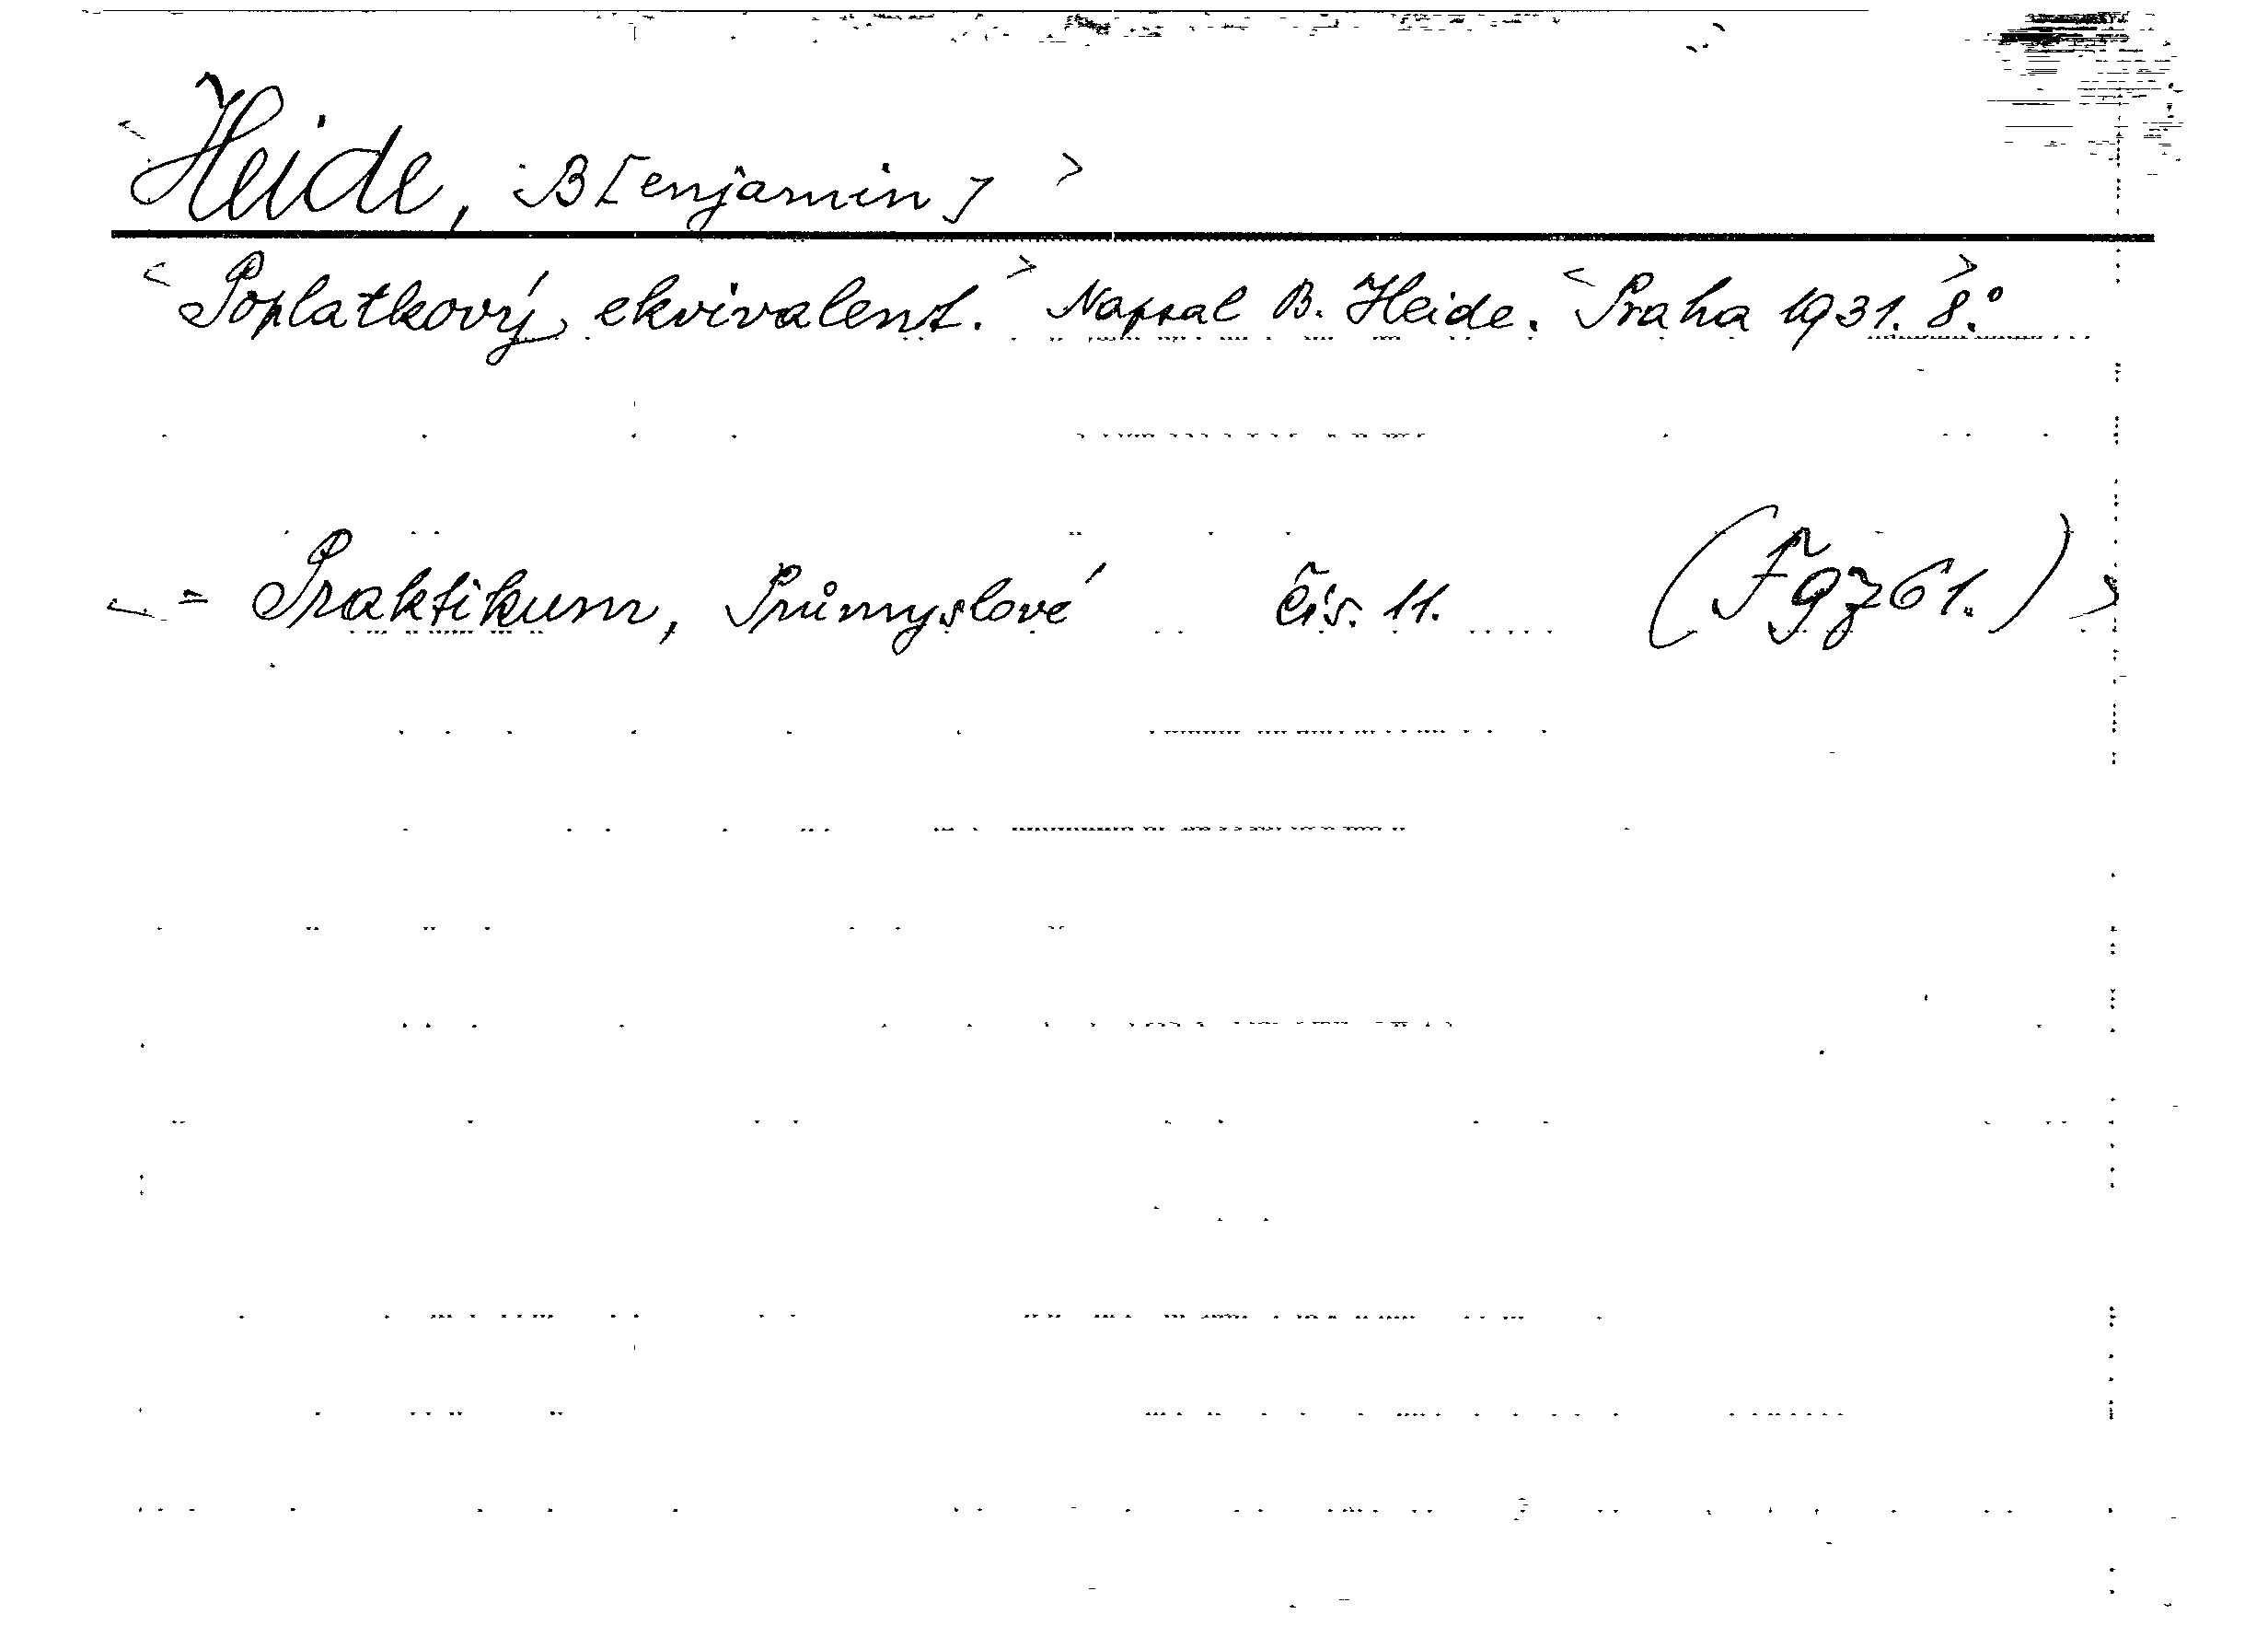 <Heide, B[enjamin]>
<Poplatkový ekvivalent.> Napsal B. Heide. <Praha 1931.> 8.°
<= Praktikum, Průmyslové čís. 11. (F g 761.)>